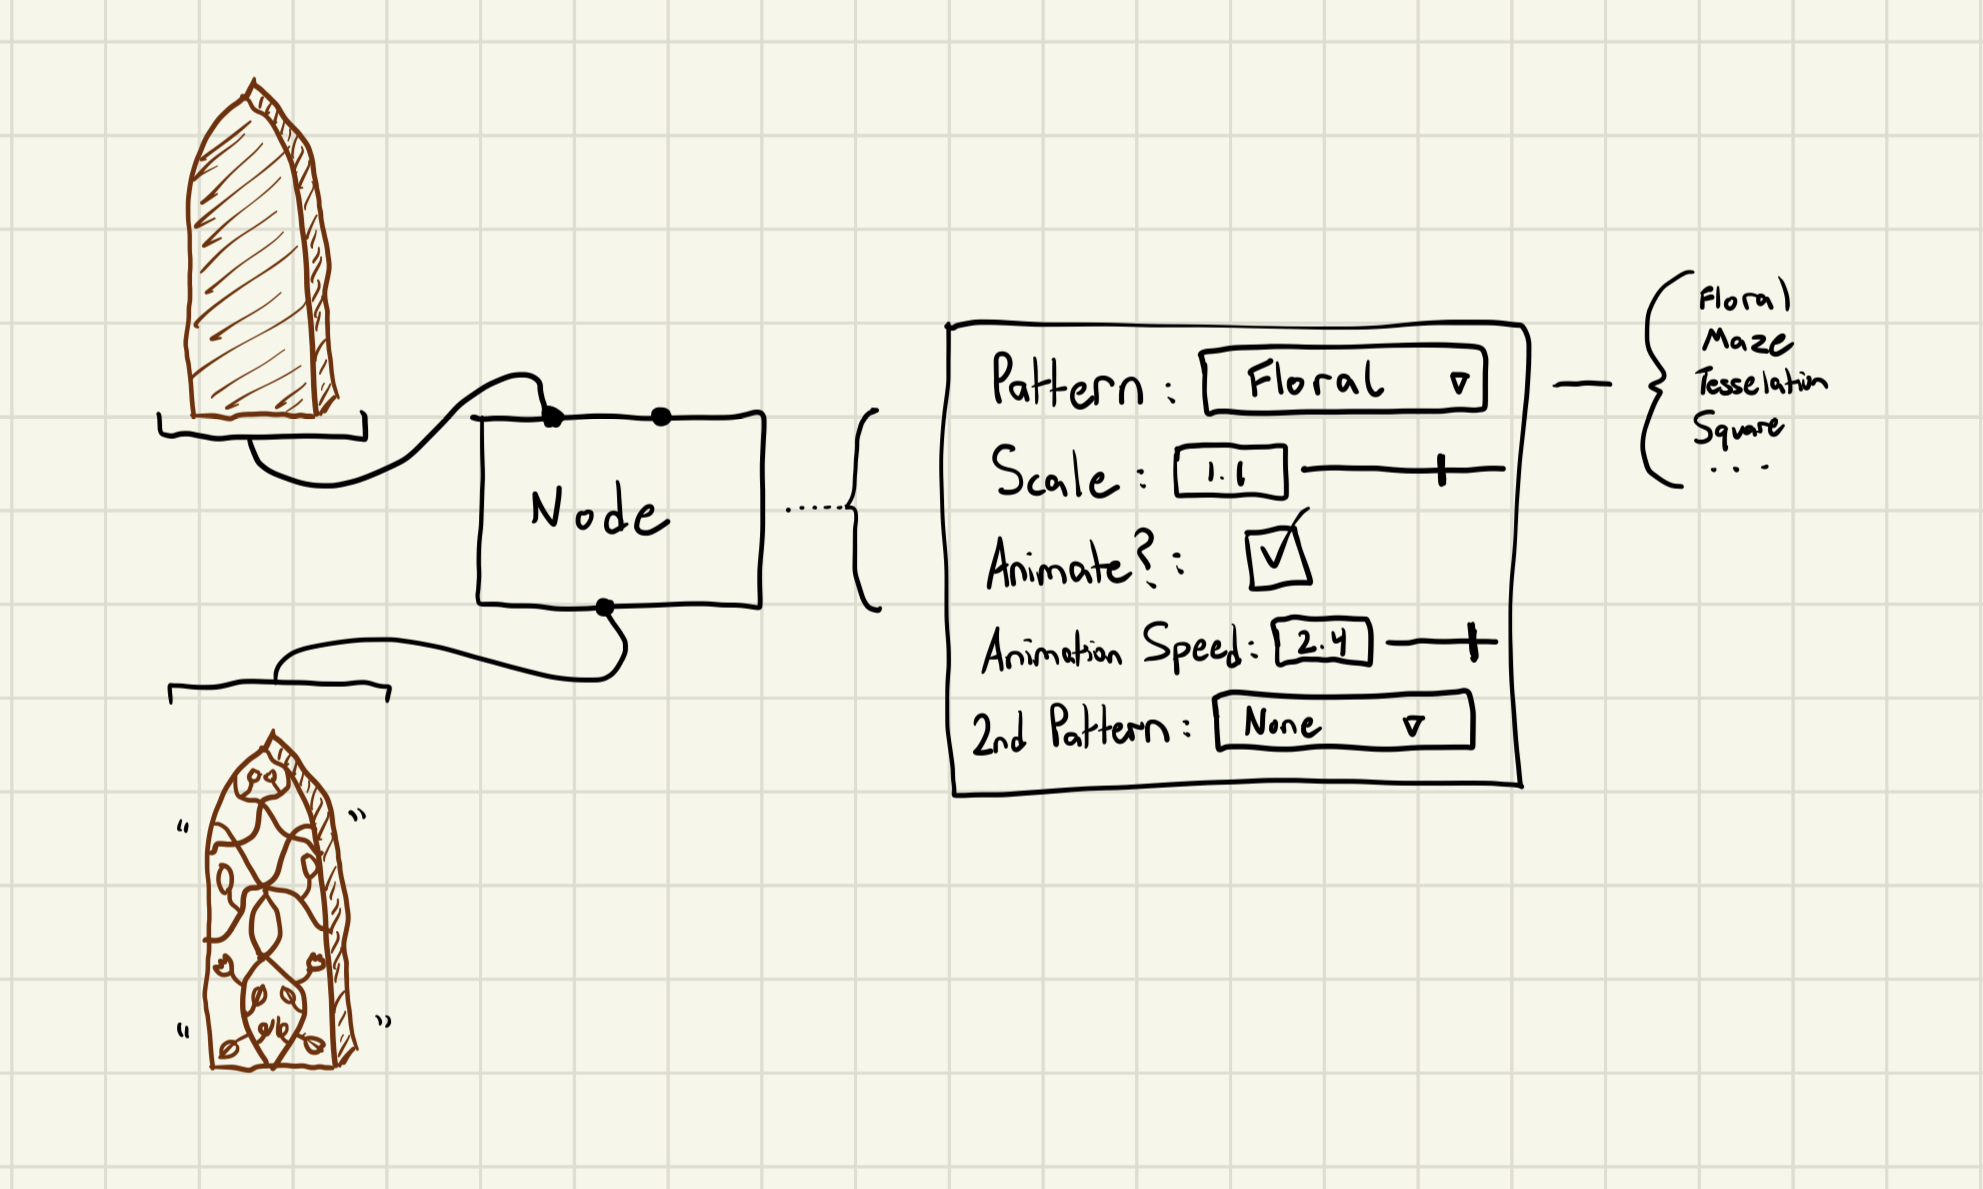 Node
Pattern: Floral
Scale: 1.1
Animate?:
Animation Speed: 2.4
2nd Pattern: None
Floral
Maze
Tesselation
Square
...